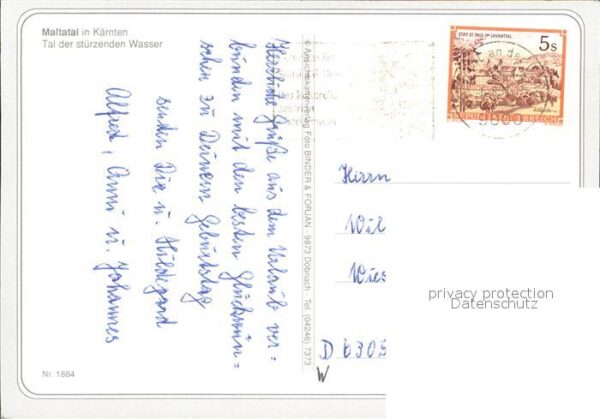 Maltatal in Kärnten
Tal der stürzenden Wasser
Herzliche Grüße aus dem Urlaub ver-
bunden mit den besten Glückwün=
schen zu Deinem Geburtstag
senden Dir u. Hildegard
Alfred, Anni u. Johannes
Nr. 1884
Foto BINDER & FORJAN · 9873 Döbriach · Tel. (04246) 7373
STIFT ST. PAUL IM LAVANTTAL
5s
REPUBLIK ÖSTERREICH
Herrn
Wil
Wies
D 6305
W
privacy protection
Datenschutz